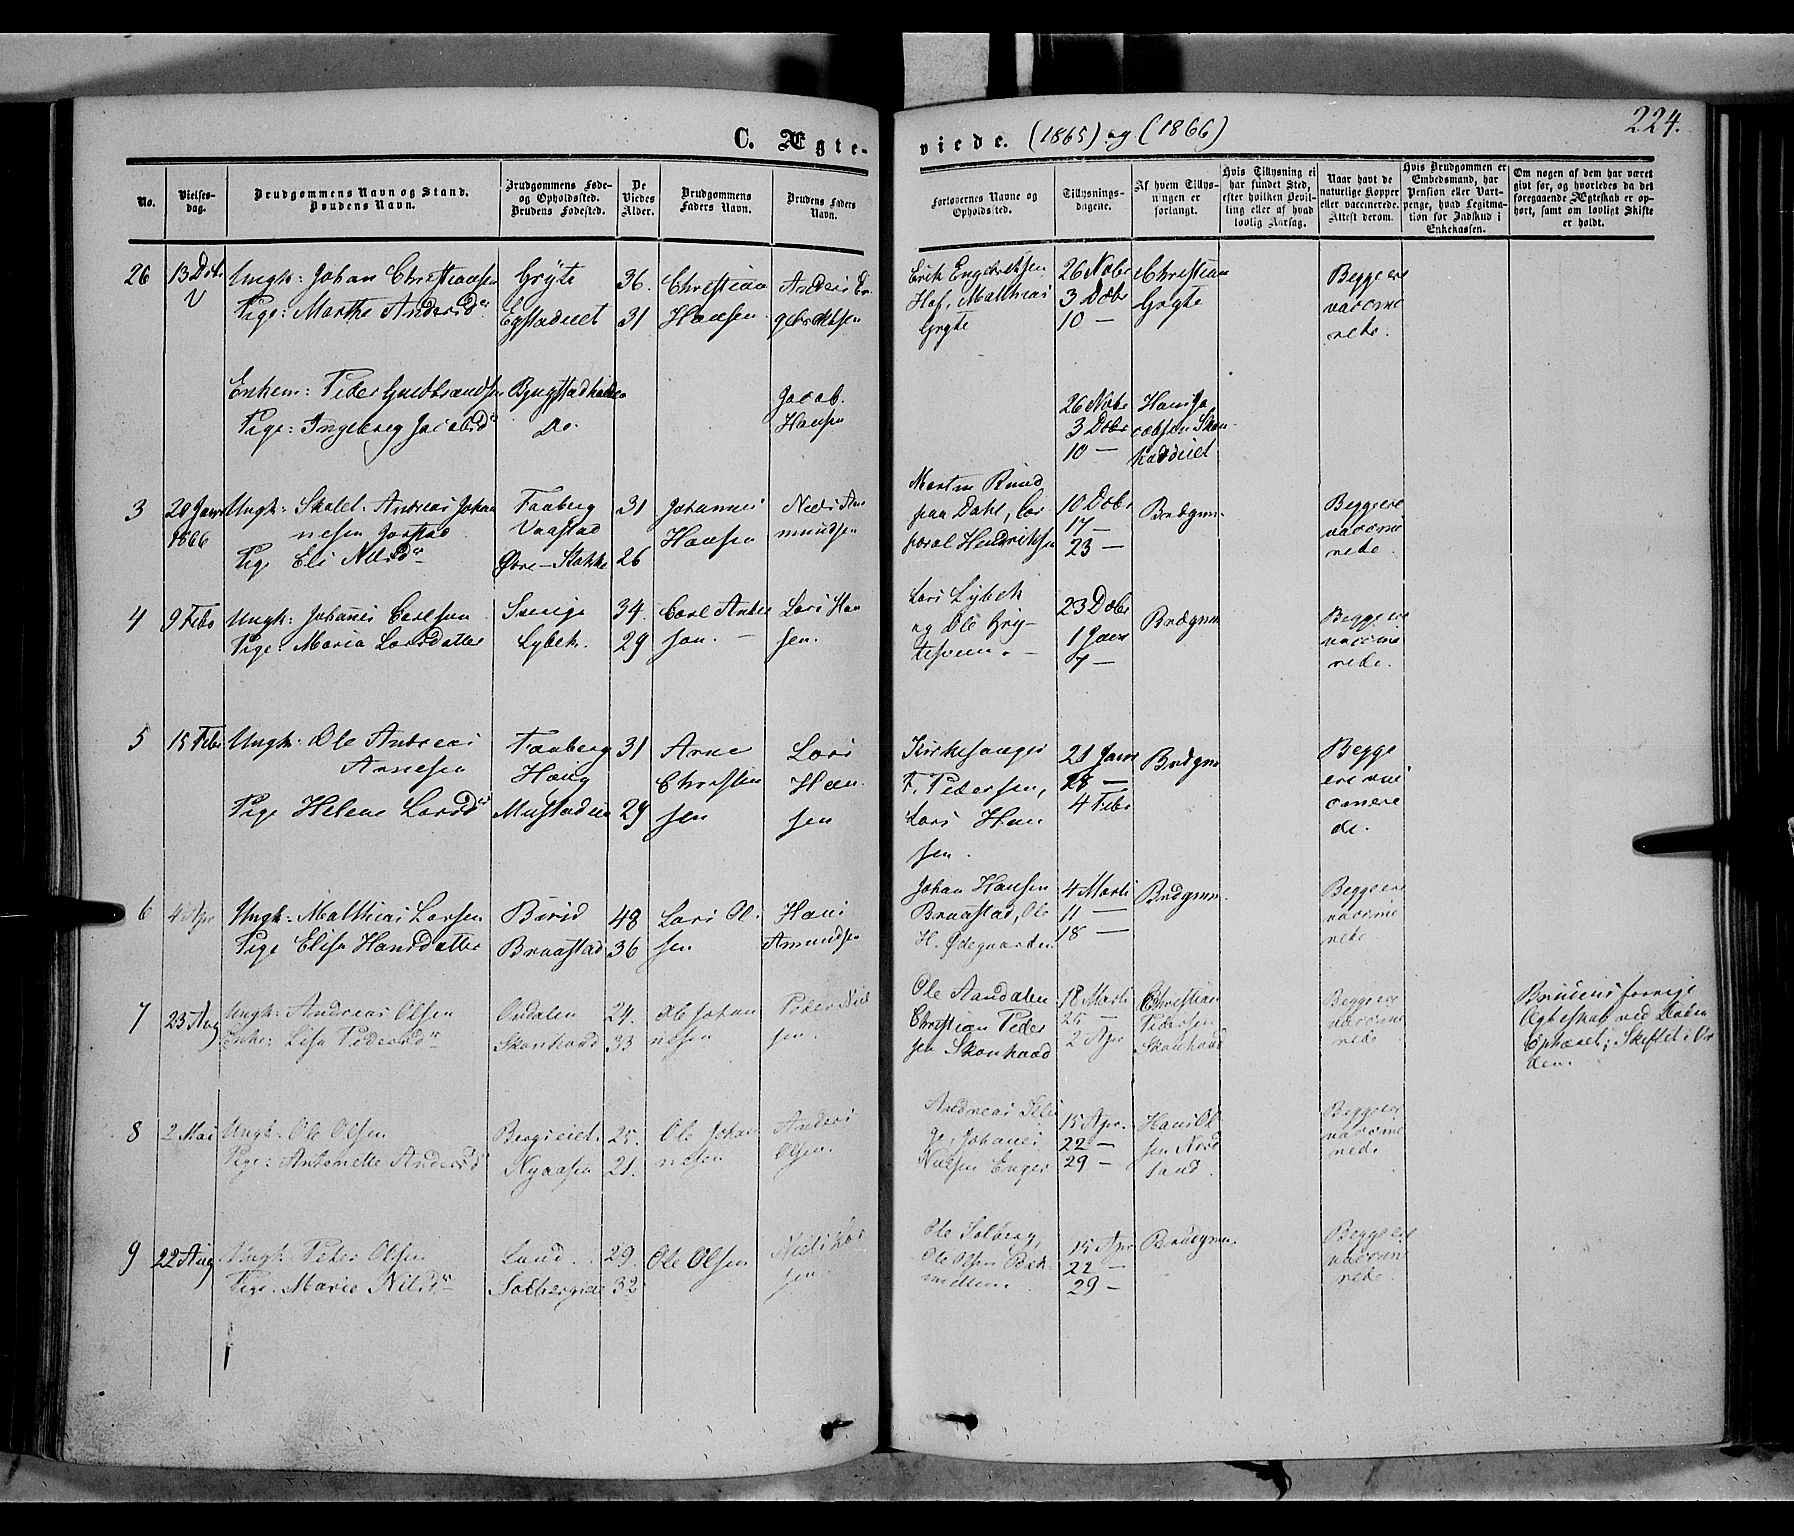 C. Ægte-
viede. (1865) og (1866)
224.
No.
Vielses-
dag.
Brudgommens Navn og Stand.
Brudens Navn.
Brudgommens Føde-
og Opholdssted.
Brudens Fødested.
De
Viedes
Alder.
Brudgommens
Faders Navn.
Brudens Faders
Navn.
Forlovernes Navne og
Opholdssted.
Tillysnings-
dagene.
Af hvem Tillys-
ningen er
forlangt.
Hvis Tillysning ei
har fundet Sted,
efter hvilken Bevil-
ling eller af hvad
lovlig Aarsag.
Naar havt de
naturlige Kopper
eller vaccinerede.
Attest derom.
Hvis Brudgommen er
Embedsmand, har
Pension eller Vart-
penge, hvad Legitima-
tion for Indskud i
Enkekassen.
Om nogen af dem har været
gift før, og hvorledes da det
foregaaende Ægteskab er op-
hørt, samt om lovligt Skifte
er holdt.
26
13 Dcbr
Ungk: Johan Christiansen
Pige: Marthe Andersdr
Gryte
Egstadeiet
36.
31
Christian
Hansen
Anders En
gebrethsen
Erik Engebrethsen
Hof, Matthias
Gryte
26 Novbr
3 Dcbr
10 —
Christian
Gryte
Begge ere
vaccine
rede.
Enkem: Peder Guldbrandsen
Pige: Ingeborg Jacobsdr
Do.
Jacob
Hansen
26 Novbr
3 Dcbr
10 —
Hans Ja
cobsen Skon
hovdeiet
3
20 Janr
1866
Ungk: Skolel. Andreas Johan
nesen
Pige Eli Nilsdr
Faaberg
Øvre-Stokke
31
26
Johannes
Hansen
Niels Am
mundsen
Martin Rund
paa Dahl, Cor
poral Hendriksen
10 Dcbr
17 —
23 —
Brudgmn.
Begge ere
vaccine
rede.
4
9 Febr
Ungk: Johanes Carlsen
Pige: Maria Larsdatter
Sverige
Lybek.
34.
29
Carl Ander
son. —
Lars Han
sen.
Lars Lybek
og Ole Gry-
tesveen. —
23 Dcbr
1 Janr
7 —
Brudgmn
Begge ere
vaccine
rede.
5
15 Febr
Ungk: Ole Andreas
Arnesen
Pige Helene Larsdr
Faaberg
Haug
Mustadeie
31
29
Arne
Christen
sen
Lars
Han
sen
Kirkesanger
F. Pedersen,
Lars Han
sen.
21 Janr
28 —
4 Febr
Brudgmn
Begge
ere vac
cinere
de.
6
4 Apr
Ungk: Matthias Larsen
Pige Elisa Hansdatter
Birid
Braastad
48
36
Lars Ol.
sen
Hans
Amundsen
Johan Hansen
Braastad, Ole
H. Ødegaarden
4 Marts
11 —
18 —
Brudgmn.
Begge ere
vaccine
rede
7
23 Aug
Ungk: Andreas Olsen
Enke: Lisa Pedersdr
Skonhovd
24.
33
Ole Johan
nesen
Peder Niel
sen.
Ole Aandalen
Christian Peder
sen Skonhovd
18 Marts
25 —
2 Apr
Christian
Pedersen
Skonhovd
Begge ere
vaccine
rede
Brudens forrige
Ægteskab ved Døden
Ophævet; Skiftet i Or
den.
8
2 Mai
Ungk: Ole Olsen
Pige: Antonette Andersdr
Bergseiet.
Nyaasen
25.
21.
Ole Johan
nesen
Anders
Olsen.
Andreas
Johanes
Nielsen Enger
15 Apr.
22 —
29 —
Hans Ol
sen Nord
land.
Begge ere
vaccine
rede
9
22 Aug
Ungk: Peder Olsen
Pige: Marie Nilsdr
Land.
Solbergeie
29.
32
Ole Olsen
Niels
sen
Ole Solberg,
Ole Olsen Bak
mellem.
15 Apr
22 —
29 —
Brudgmn.
Begge ere
vaccine
rede.